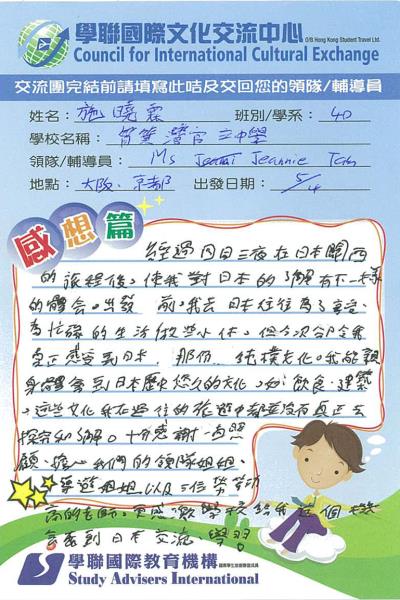 學聯國際文化交流中心 O/B Hong Kong Student Travel Ltd.
Council for International Cultural Exchange
交流團完結前請填寫此咭及交回您的領隊/輔導員
姓名： 施曉霖 班別/學系： 4D
學校名稱： 官立中學
領隊/輔導員： Ms Jeannie Tam
地點： 大阪、京都 出發日期： 5/4
感想篇
經過四日三夜在日本關西
的旅程後，使我對日本的了解有不一樣
的體會。出發前，我去日本往往為了享受、
為忙碌的生活做些小休，但今次卻令我
真正感受到日本那份純樸文化。我能親
身體會到日本歷史悠久的文化，如：飲食、建築
，這些文化我在過往的旅遊中都並沒有真正去
探究和了解。十分感謝照
顧、擔心我們的領隊姐姐、
導遊姐姐以及三位勞苦功
高的老師。更感激學校給我這個機
會來到日本交流、學習。
學聯國際教育機構
Study Advisers International